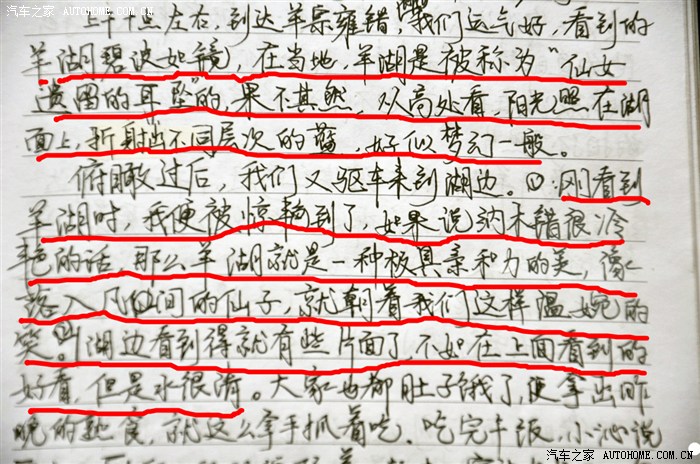 汽车之家 AUTOHOME.COM.CN
左右,到达羊卓雍错,我们运气好,看到的
羊湖碧波如镜,在当地,羊湖是被称为“仙女
遗留的耳坠”的,果不其然,从高处看,阳光照在湖
面上,折射出不同层次的蓝,好似梦幻一般。
俯瞰过后,我们又驱车来到湖边。①刚看到
羊湖时,我便被惊艳到了,如果说纳木错很冷
艳的话,那么羊湖就是一种极具亲和力的美,像
落入凡间的仙子,就朝着我们这样温婉的
笑。湖边看到得就有些片面了,不如在上面看到的
好看,但是水很清。大家也都肚子饿了,便拿出昨
晚的熟食,就这么拿手抓着吃。吃完午饭,小沁说
汽车之家 AUTOHOME.COM.CN